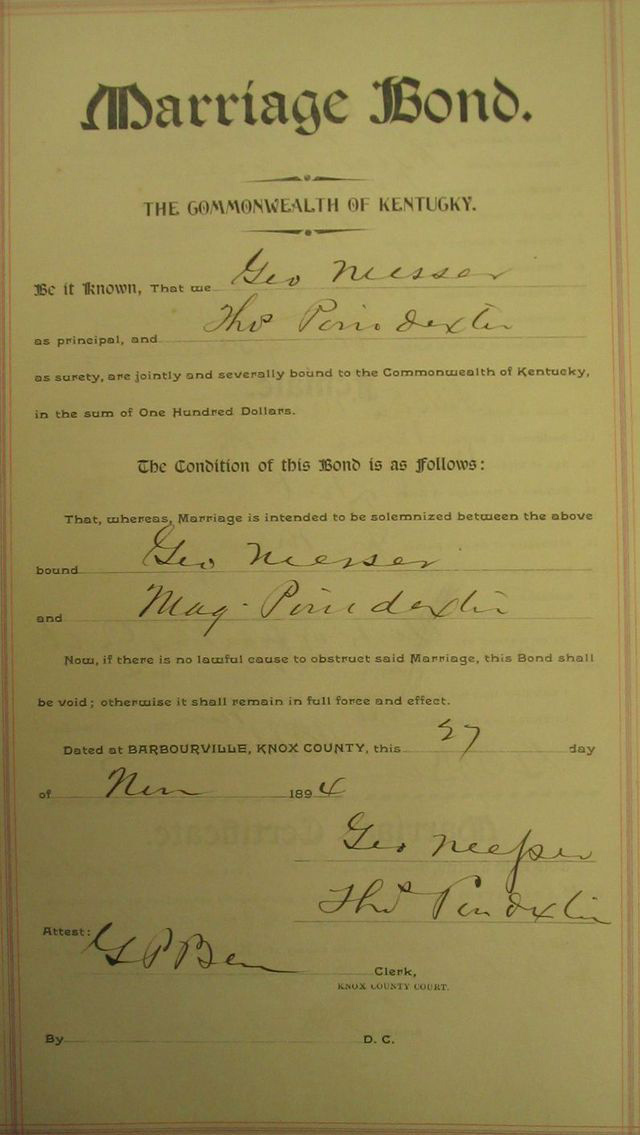 Marriage Bond.
THE COMMONWEALTH OF KENTUCKY.
Be it Known, That we Geo Messer
as principal, and Thos Poindexter
as surety, are jointly and severally bound to the Commonwealth of Kentucky,
in the sum of One Hundred Dollars.
The Condition of this Bond is as Follows:
That, whereas, Marriage is intended to be solemnized between the above
bound Geo Messer
and Mag. Poindexter
Now, if there is no lawful cause to obstruct said Marriage, this Bond shall
be void; otherwise it shall remain in full force and effect.
Dated at BARBOURVILLE, KNOX COUNTY, this 27 day
of Nov 1894
Geo Messer
Thos Poindexter
Attest:
G P Clerk,
KNOX COUNTY COURT.
By D. C.